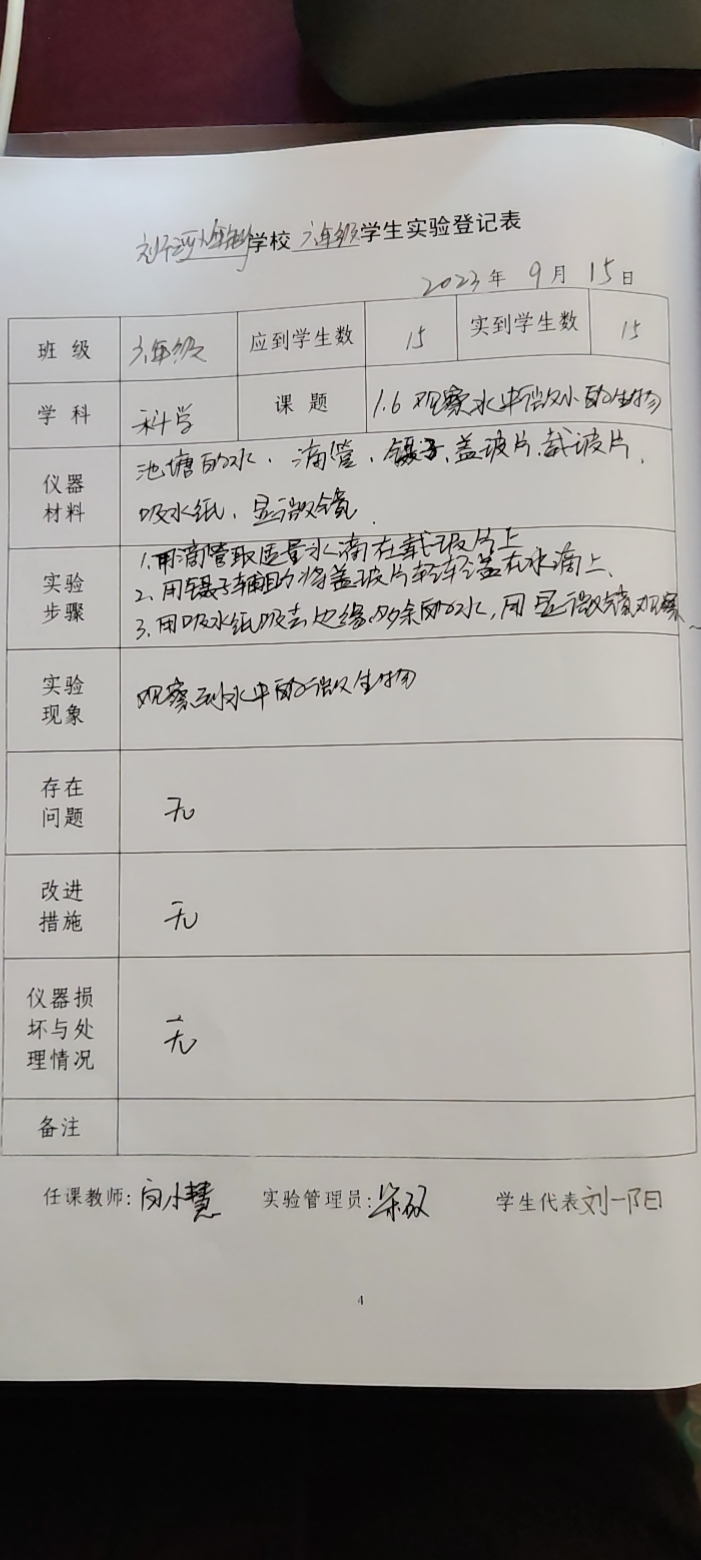 学校 六年级学生实验登记表
2023年 9月 15日
班级 六年级 应到学生数 15 实到学生数 15
学科 科学 课题 1.6 观察水中微小的生物
仪器材料 池塘的水、滴管、镊子、盖玻片、载玻片、
吸水纸、显微镜
实验步骤 1.用滴管取适量水滴在载玻片上
2.用镊子辅助将盖玻片轻轻盖在水滴上、
3.用吸水纸吸去边缘多余的水,用显微镜观察
实验现象 观察到水中的微生物
存在问题 无
改进措施 无
仪器损坏与处理情况 无
备注
任课教师:向小慧 实验管理员: 学生代表刘一阳
4